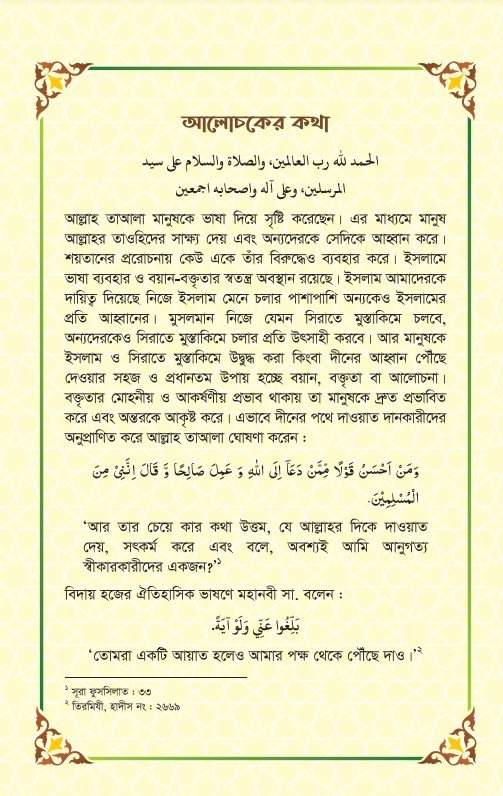 আলোচকের কথা
الحمد لله رب العالمين، والصلاة والسلام على سيد
المرسلين، وعلى آله واصحابه اجمعين
আল্লাহ তাআলা মানুষকে ভাষা দিয়ে সৃষ্টি করেছেন। এর মাধ্যমে মানুষ
আল্লাহর তাওহিদের সাক্ষ্য দেয় এবং অন্যদেরকে সেদিকে আহ্বান করে।
শয়তানের প্ররোচনায় কেউ একে তাঁর বিরুদ্ধেও ব্যবহার করে। ইসলামে
ভাষা ব্যবহার ও বয়ান-বক্তৃতার স্বতন্ত্র অবস্থান রয়েছে। ইসলাম আমাদেরকে
দায়িত্ব দিয়েছে নিজে ইসলাম মেনে চলার পাশাপাশি অন্যকেও ইসলামের
প্রতি আহ্বানের। মুসলমান নিজে যেমন সিরাতে মুস্তাকিমে চলবে,
অন্যদেরকেও সিরাতে মুস্তাকিমে চলার প্রতি উৎসাহী করবে। আর মানুষকে
ইসলাম ও সিরাতে মুস্তাকিমে উদ্বুদ্ধ করা কিংবা দীনের আহ্বান পৌঁছে
দেওয়ার সহজ ও প্রধানতম উপায় হচ্ছে বয়ান, বক্তৃতা বা আলোচনা।
বক্তৃতার মোহনীয় ও আকর্ষণীয় প্রভাব থাকায় তা মানুষকে দ্রুত প্রভাবিত
করে এবং অন্তরকে আকৃষ্ট করে। এভাবে দীনের পথে দাওয়াত দানকারীদের
অনুপ্রাণিত করে আল্লাহ তাআলা ঘোষণা করেন :
وَمَنْ اَحْسَنُ قَوْلًا مِّمَّنْ دَعَاۤ اِلَى اللهِ وَ عَمِلَ صَالِحًا وَّ قَالَ اِنَّنِیْ مِنَ
الْمُسْلِمِیْنَ.
‘আর তার চেয়ে কার কথা উত্তম, যে আল্লাহর দিকে দাওয়াত
দেয়, সৎকর্ম করে এবং বলে, অবশ্যই আমি আনুগত্য
স্বীকারকারীদের একজন?’¹
বিদায় হজের ঐতিহাসিক ভাষণে মহানবী সা. বলেন :
بَلِّغُوا عَنِّي وَلَوْ آيَةً.
‘তোমরা একটি আয়াত হলেও আমার পক্ষ থেকে পৌঁছে দাও।’²
¹ সূরা ফুসসিলাত : ৩৩
² তিরমিযী, হাদীস নং : ২৬৬৯